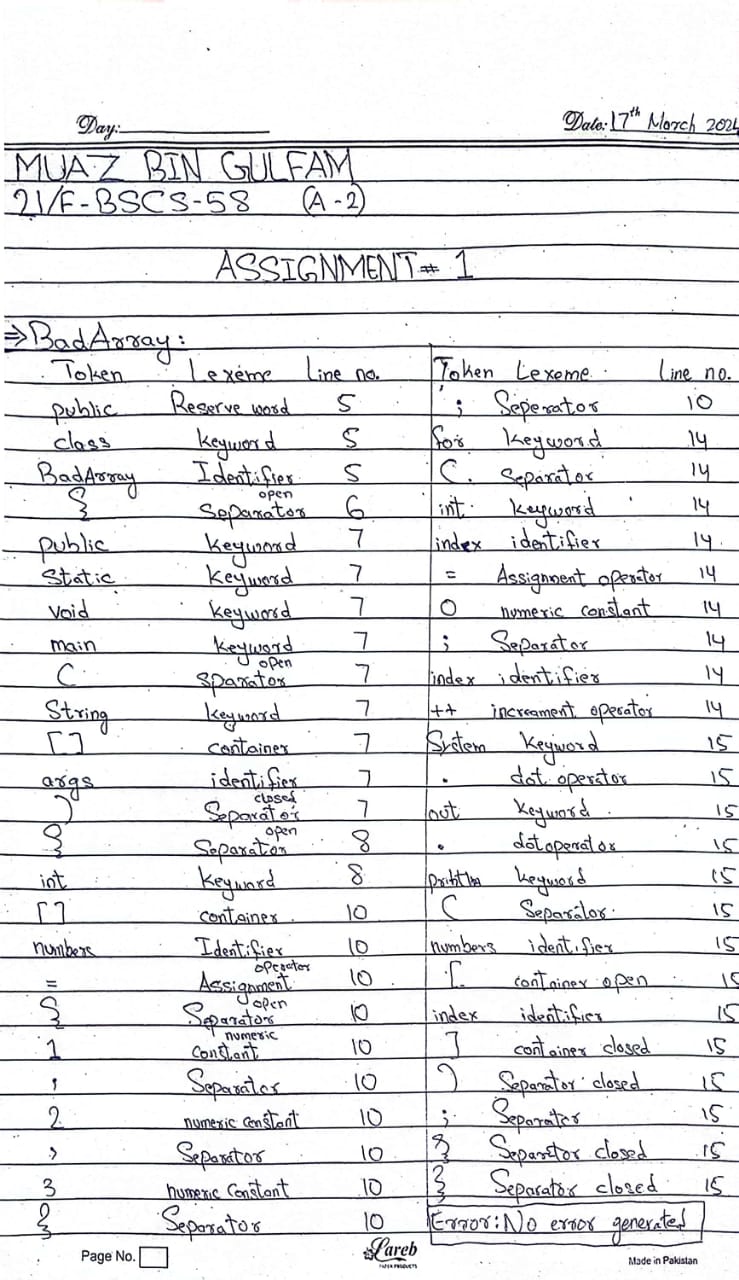 Day: Date: 17th March 2024
MUAZ BIN GULFAM
21/F-BSCS-58 (A-2)
ASSIGNMENT # 1
⇒ BadArray:
Token Lexeme Line no.
public Reserve word 5
class keyword 5
BadArray Identifier 5
{ Separator open 6
public keyword 7
Static keyword 7
void keyword 7
main keyword 7
( Sparator open 7
String keyword 7
[] container 7
args identifier 7
) Separator closed 7
{ Separator open 8
int keyword 8
[] container 10
numbers Identifier 10
= Assignment operator 10
{ Separator open 10
1 numeric constant 10
, Separator 10
2 numeric constant 10
, Separator 10
3 numeric constant 10
} Separator 10
Token Lexeme Line no.
; Seperator 10
for keyword 14
( Separator 14
int keyword 14
index identifier 14
= Assignment operator 14
0 numeric constant 14
; Separator 14
index identifier 14
++ increament operator 14
System keyword 15
. dot operator 15
out keyword 15
. dot operator 15
println keyword 15
( Separator 15
numbers identifier 15
[ container open 15
index identifier 15
] container closed 15
) Separator closed 15
; Separator 15
} Separetor closed 15
} Separator closed 15
Error: No error generated
Page No. Lareb PAPER PRODUCTS Made in Pakistan